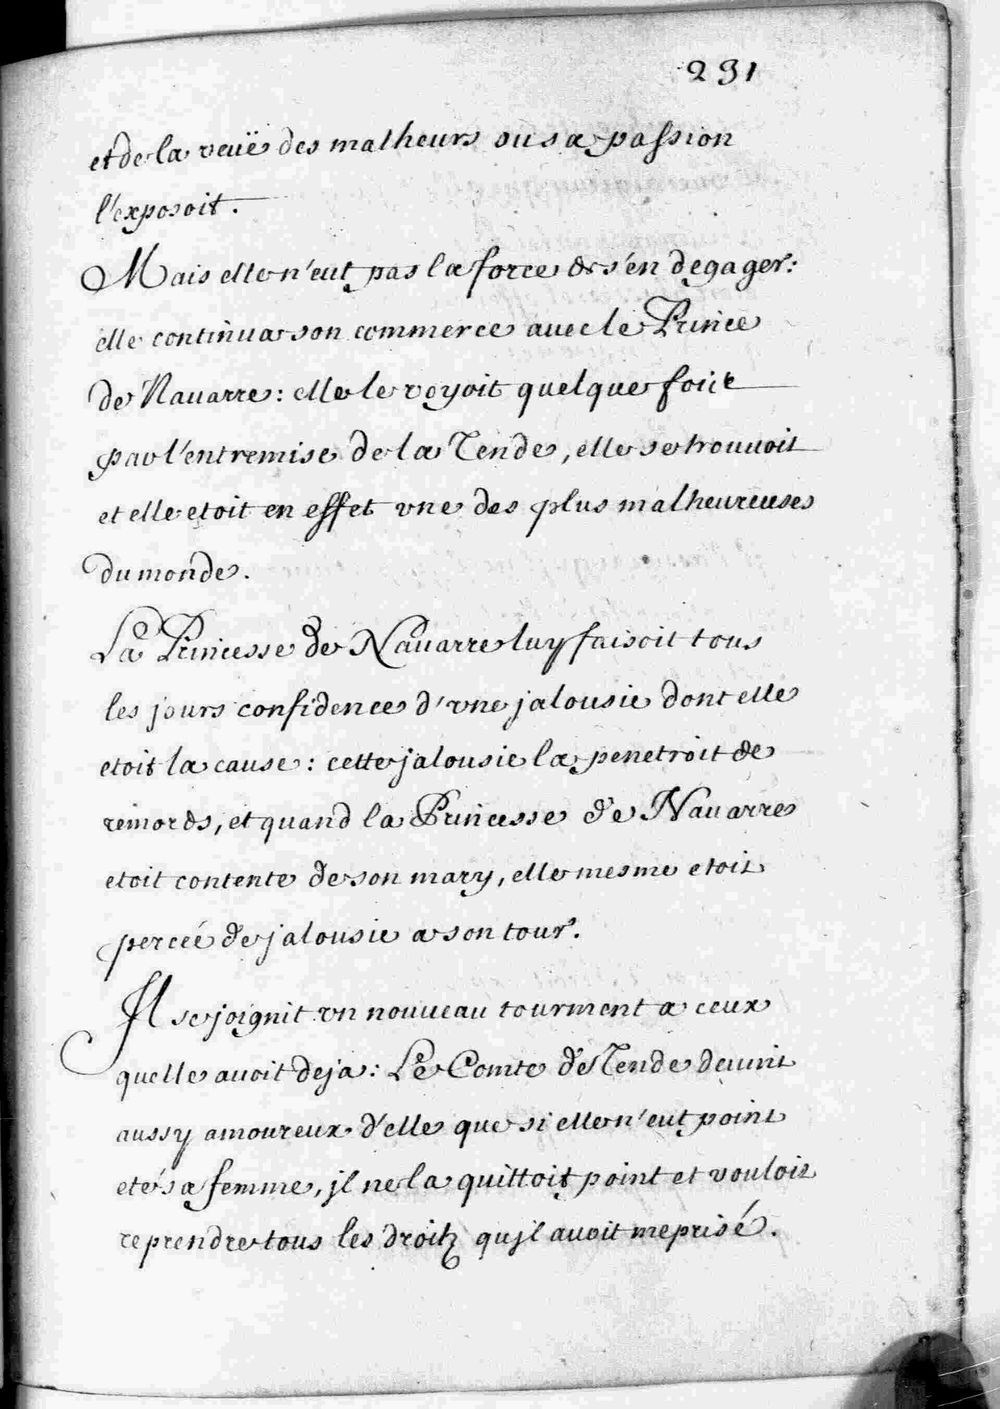 231
et de la veuë des malheurs ou sa passion
l'exposoit.
Mais elle n'eut pas la force de s'en degager:
elle continua son commerce auec le Prince
de Nauarre: elle le voyoit quelque fois
par l'entremise de la Tende, elle se trouuoit
et elle etoit en effet vne des plus malheureuses
du monde.
La Princesse de Nauarre luy faisoit tous
les jours confidence d'vne jalousie dont elle
etoit la cause: cette jalousie la penetroit de
remords, et quand la Princesse de Nauarre
etoit contente de son mary, elle mesme etoit
percée de jalousie a son tour.
Il se joignit vn nouueau tourment a ceux
quelle auoit deja: Le Comte de Tende deuint
aussy amoureux d'elle que si elle n'eut point
eté sa femme, jl ne la quittoit point et vouloit
reprendre tous les droitz qujl auoit meprisé.